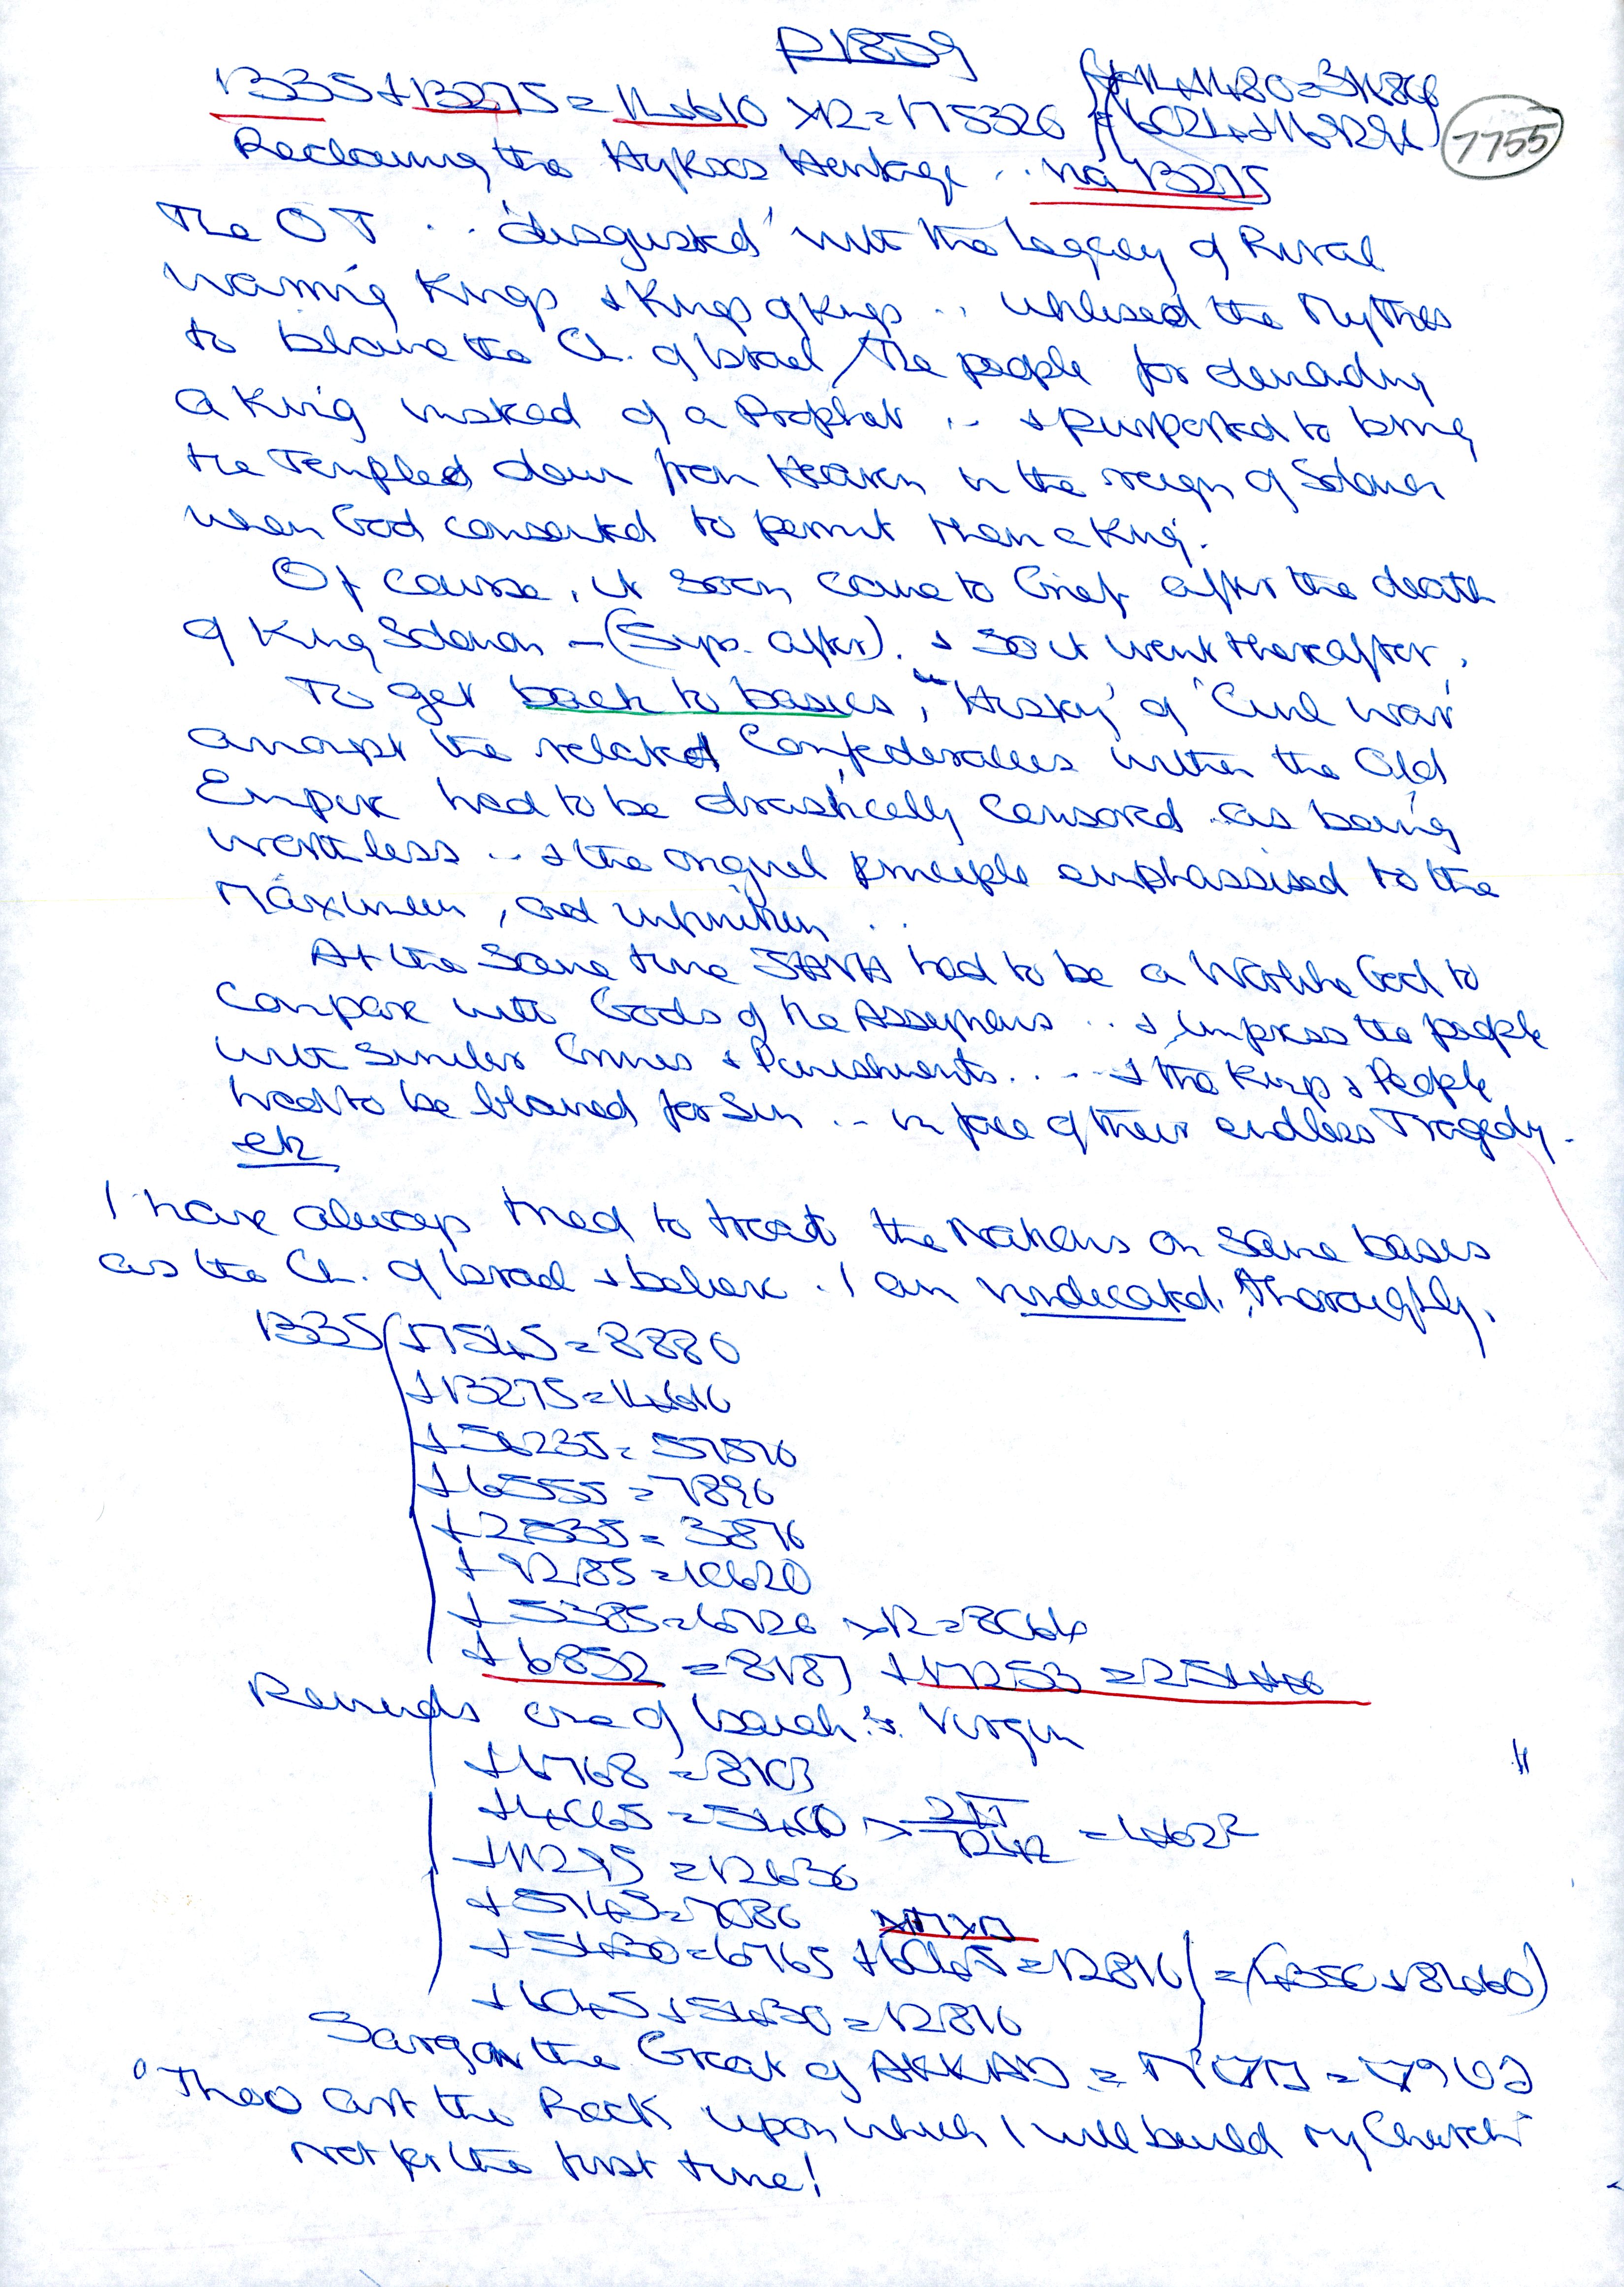 P1859
1335 + 13275 = 14610 x12 = 175320
7755
Reclaiming the Hyksos Heritage .. via 13275
The OT .. 'disgusted' with the Legacy of Rival
Warring Kings & Kings of Kings .. utilised the Mythes
to blame the Ch. of Israel / the people for demanding
a King instead of a Prophet .. & purported to bring
the Temple down from Heaven in the reign of Solomon
when God consented to permit them a King.
Of course, it soon came to Grief after the death
of King Solomon - (Syps. after). & so it went thereafter.
To get back to basics, 'History' of 'Civil War'
amongst the related Confederacies within the Old
Empire had to be drastically censored as being
worthless .. & the original principle emphassised to the
Maximum, and infinitum ..
At the same time JAVA had to be a Warlike God to
Compare with Gods of the Assyrians .. & impress the people
with similar Crimes & Punishments .. & the Kings & People
had to be blamed for Sin .. in face of their endless Tragedy.
etc
I have always tried to treat the Nations on same bases
as the Ch. of Israel & believe I am vindicated, thoroughly.
1335 + 7545 = 8880
+ 13275 = 14610
+ 56235 = 57570
+ 6555 = 7890
+ 2535 = 3870
+ 9285 = 10620
+ 5385 = 6720 x12 = 80640
+ 6852 = 8187 + 17253 = 25440
Reminds one of Isaiah's Virgin
+ 6768 = 8103
+ 4065 = 5400
+ 11295 = 12630
+ 5745 = 7080
+ 5430 = 6765 + 6045 = 12810 = (4350 + 8460)
+ 6045 + 5430 = 12810
Sargon the Great of AKKAD =
"Thou art the Rock upon which I will build my Church"
Not for the first time!